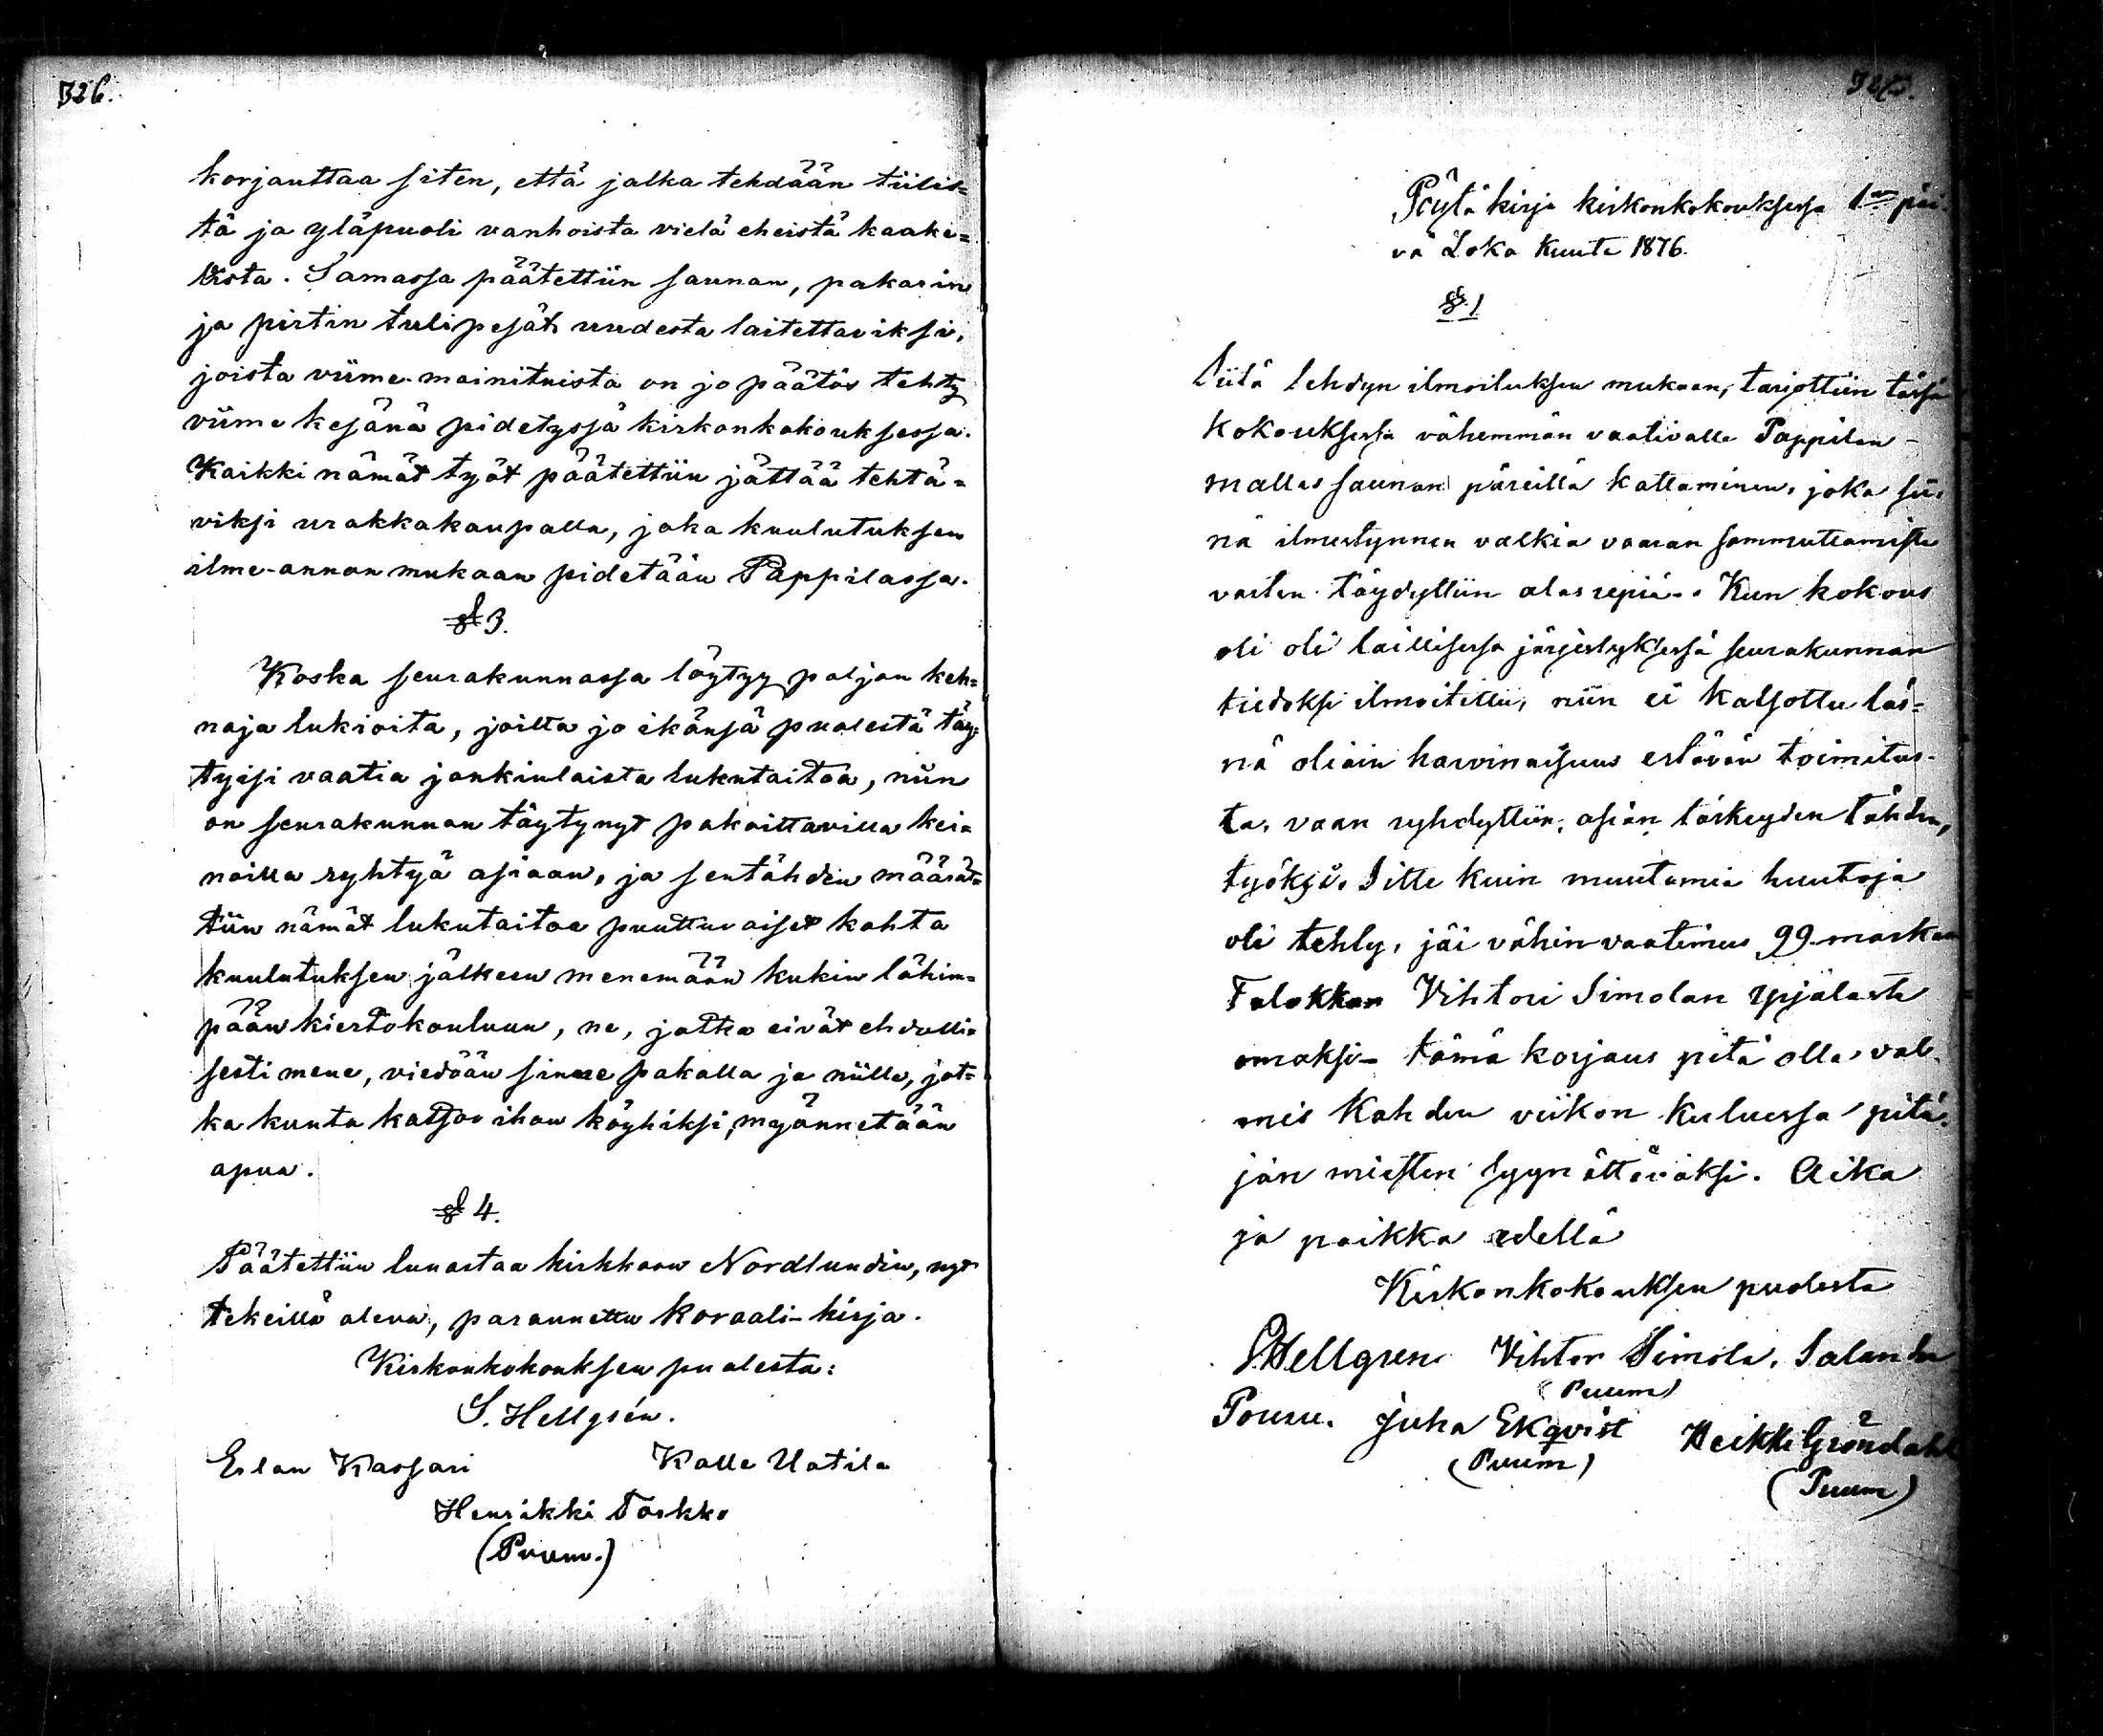 326.
korjauttaa siten, että jalka tehdään tiilis=
tä ja yläpuoli vanhoista vielä eheistä kaake=
lista. Samassa päätettiin saunan, pakarin
ja pirtin tulipesät uudesta laitettaviksi,
joista viime-mainituista on jo päätös tehty
viime kesänä pidetyssä kirkonkokouksessa.
Kaikki nämät työt päätettiin jättää tehtä=
viksi urakkakaupalla, joka kuulutuksen
ilme-annon mukaan pidetään Pappilassa.
§ 3.
Koska seurakunnassa löytyy paljon keh=
noja lukioita, joilta jo ikänsä puolesta täy=
tyisi vaatia jonkinlaista lukutaitoa, niin
on seurakunnan täytynyt pakoittavilla kei=
noilla ryhtyä asiaan, ja sentähden määrät=
tiin nämät lukutaitoa puuttuvaiset kohta
kuulutuksen jälkeen menemään kukin lähim=
pään kiertokouluun, ne, jotka eivät ehdolli=
sesti mene, viedään sinne pakolla ja niille, jot=
ka kunta katsoo ihan köyhiksi, myönnetään
apua.
§ 4.
Päätettiin lunastaa kirkkoon Nordlundin, nyt
tekeillä oleva, parannettu koraali-kirja.
Kirkonkokouksen puolesta:
S. Hellgrén.
Erlan Kassari Kalle Uotila
Henrikki Torkko
(Puum.)
Pöytäkirja kirkonkokouksessa 1<sup>nen</sup> päi-
vä Loka Kuuta 1876.
§ 1
Siitä tehdyn ilmoituksen mukaan, tarjottiin tässä
Kokouksessa vähemmän vaativalle Pappilan-
mallas saunan päreillä kattaminen, joka sii-
nä ilmestynnen valkia vaaran sammuttamista
varten täydyttiin alas repiä. Kun kokous
oli oli laillisessa järjestyksessä seurakunnan
tiedoksi ilmoitettu, niin ei katsottu läs-
nä oliain harvinaisuus estävän toimitus-
ta, vaan ryhdyttiin, asian tärkeyden tähden,
työksi. Sitte kuin muutamia huutoja
oli tehty, jäi vähin vaatimus 99 markaa
Talokkan Vihtori Simolan Ypjälästä
omaksi- tämä korjaus pitä olla val-
mis Kahden viikon kuluessa pitä-
jän miesten syynättäväksi. Aika
ja paikka edellä
Kirkonkokouksen puolesta
S. Hellgren Vihtor Simola. Salander
(Puum)
Pouru. Juha Ekqvist Heikki Gröndahl
(Puum)
(Puum)